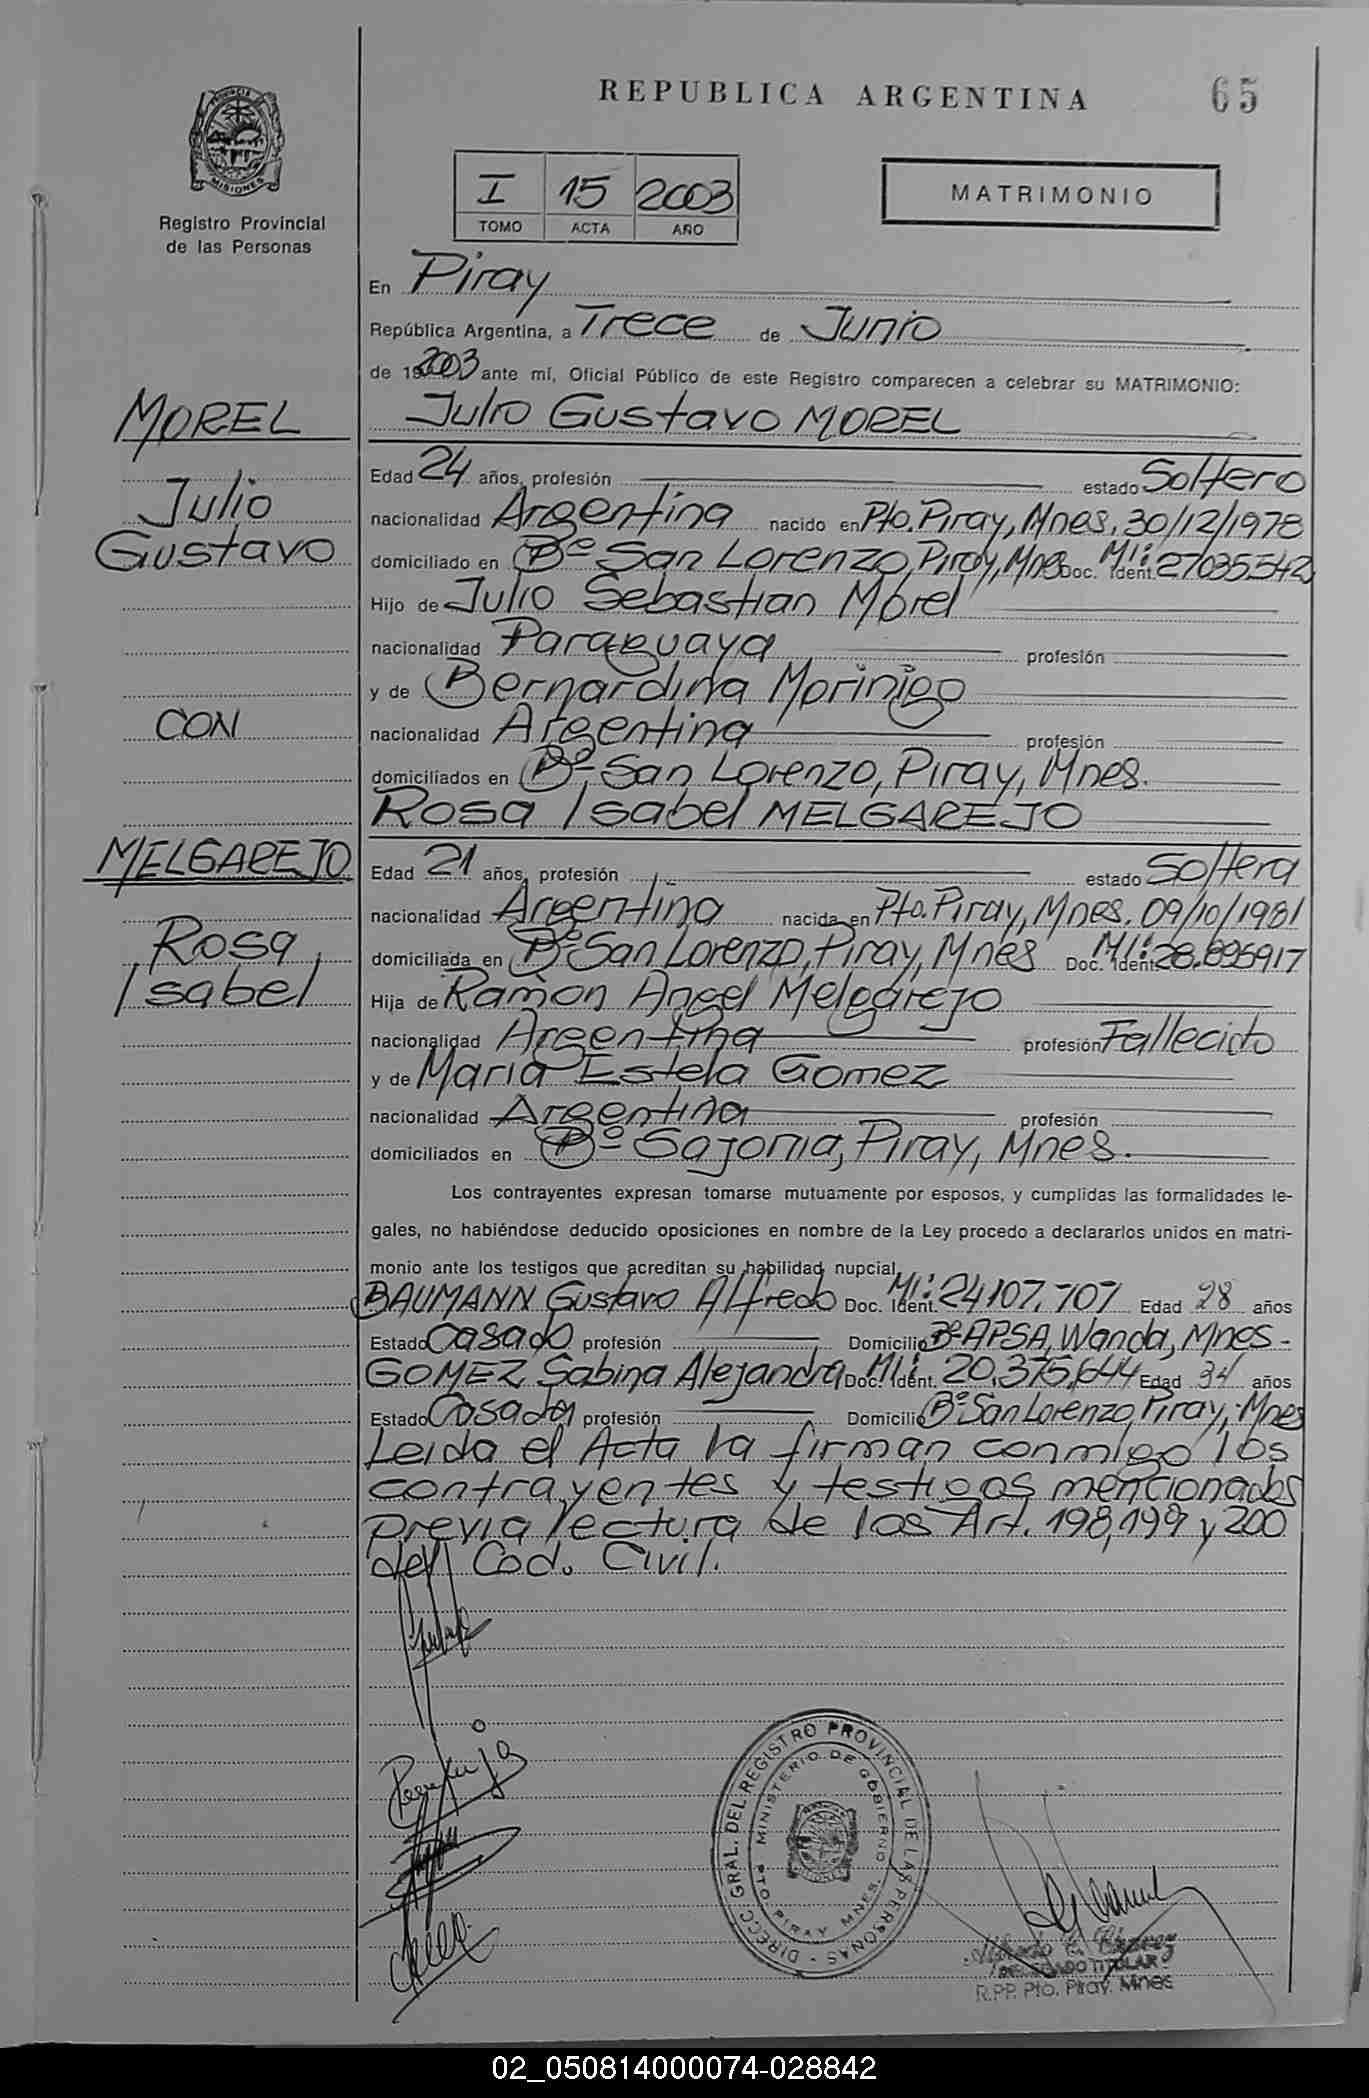 REPUBLICA ARGENTINA
65
PROVINCIA DE MISIONES
Registro Provincial
de las Personas
I 15 2003
TOMO ACTA AÑO
MATRIMONIO
En Piray
República Argentina, a Trece de Junio
de 19 2003 ante mí, Oficial Público de este Registro comparecen a celebrar su MATRIMONIO:
MOREL
Julio
Gustavo
CON
MELGAREJO
Rosa
Isabel
Julio Gustavo MOREL
Edad 24 años, profesión estado Soltero
nacionalidad Argentina nacido en Pto. Piray, Mnes, 30/12/1978
domiciliado en Bº San Lorenzo, Piray, Mnes Doc. Ident. M.I: 27035542
Hijo de Julio Sebastian Morel
nacionalidad Paraguaya profesión
y de Bernardina Morinigo
nacionalidad Argentina profesión
domiciliados en Bº San Lorenzo, Piray, Mnes.
Rosa Isabel MELGAREJO
Edad 21 años, profesión estado Soltera
nacionalidad Argentina nacida en Pto. Piray, Mnes. 09/10/1981
domiciliada en Bº San Lorenzo, Piray, Mnes Doc. Ident. M.I: 28.895917
Hija de Ramón Angel Melgarejo
nacionalidad Argentina profesión Fallecido
y de Maria Estela Gomez
nacionalidad Argentina profesión
domiciliados en Bº Sajonia, Piray, Mnes.
Los contrayentes expresan tomarse mutuamente por esposos, y cumplidas las formalidades le-
gales, no habiéndose deducido oposiciones en nombre de la Ley procedo a declararlos unidos en matri-
monio ante los testigos que acreditan su habilidad nupcial,
BAUMANN Gustavo Alfredo Doc. Ident. M.I: 24.107.707 Edad 28 años
Estado Casado profesión Domicilio Bº APSA, Wanda, Mnes-
GOMEZ Sabina Alejandra Doc. Ident. M.I: 20.375.644 Edad 34 años
Estado Casada profesión Domicilio Bº San Lorenzo, Piray, Mnes
Leida el Acta la firman conmigo los
contrayentes y testigos mencionados
previa lectura de los Art. 198, 199 y 200
del Cod. Civil.
DIRECC. GRAL. DEL REGISTRO PROVINCIAL DE LAS PERSONAS -
MINISTERIO DE GOBIERNO
PTO. PIRAY MNES.
DELEGADO TITULAR
R.P.P. Pto. Piray. Mnes
02_050814000074-028842